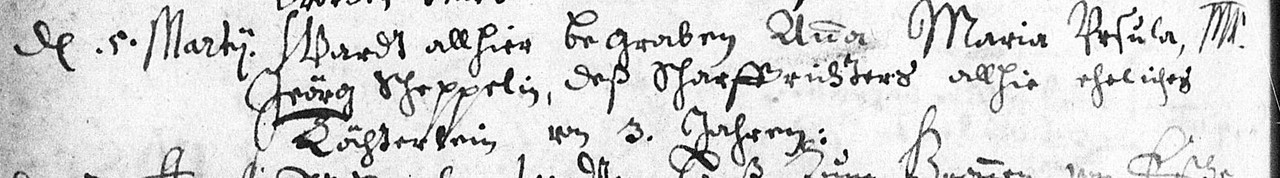 dẽ .5. Martÿ. Wardt allhier begraben Aña Maria Vrsula, Mr.
Geörg Scheppelin, deß Scharffrichters allhie eheliches
Töchterlein von 3. Jahren.